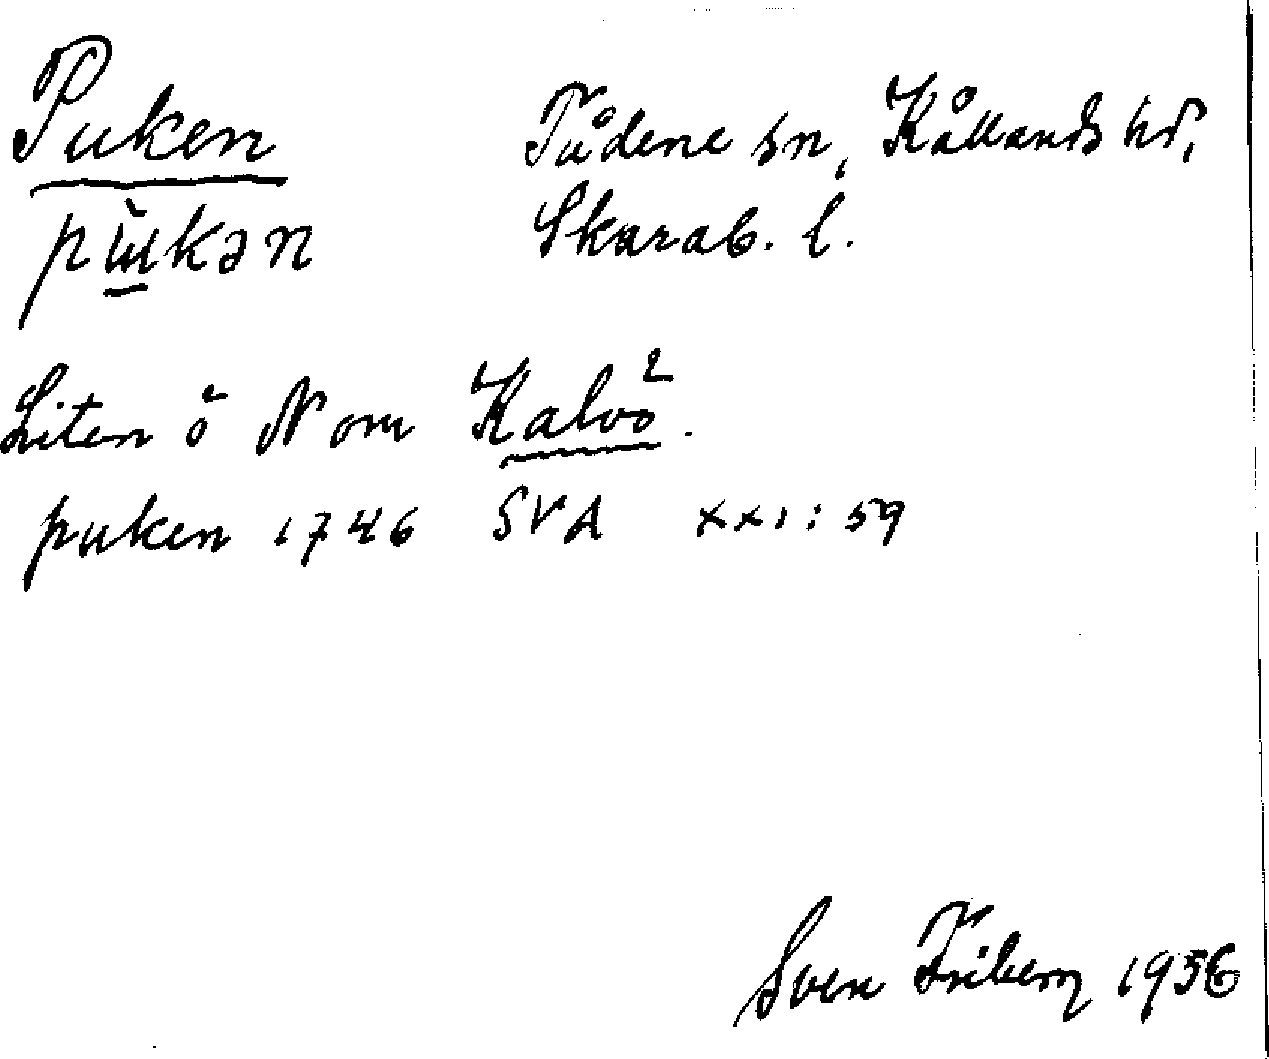 Puken Tådene sn, Kållands hd,
pɯ̀kən Skarab. l.
Liten ö N om Kalvö 2.
puken 1746 SVA XXI: 59
Sven Friberg 1956